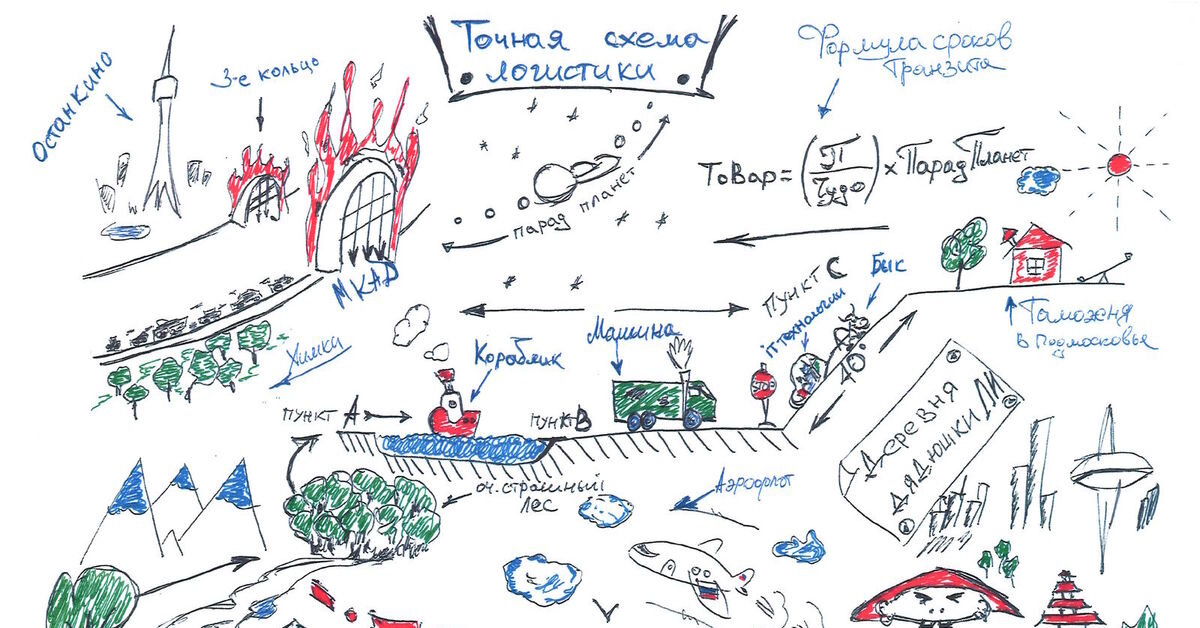 Точная схема
логистики
Формула сроков
транзита
Останкино
3-е кольцо
Товар = (П / Чудо) × Парад Планет
парад планет
МКАД
Химки
Пункт С
Бык
IT технологии
40°
Таможня
в Подмосковье
Машина
Кораблик
STOP
пункт А
пункт В
Деревня
дядюшки ЛИ
оч. страшный
лес
Аэрофлот